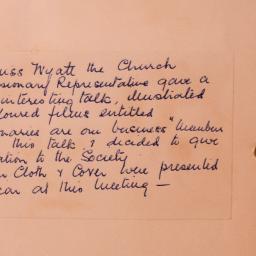 uss Wyatt the Church
sionary Representative gave a
interesting talk, illustrated
loured films entitled
onaries are our business" Member
this talk & decided to give
ation to the Society
Cloth & Cover were presented
ear at this meeting —